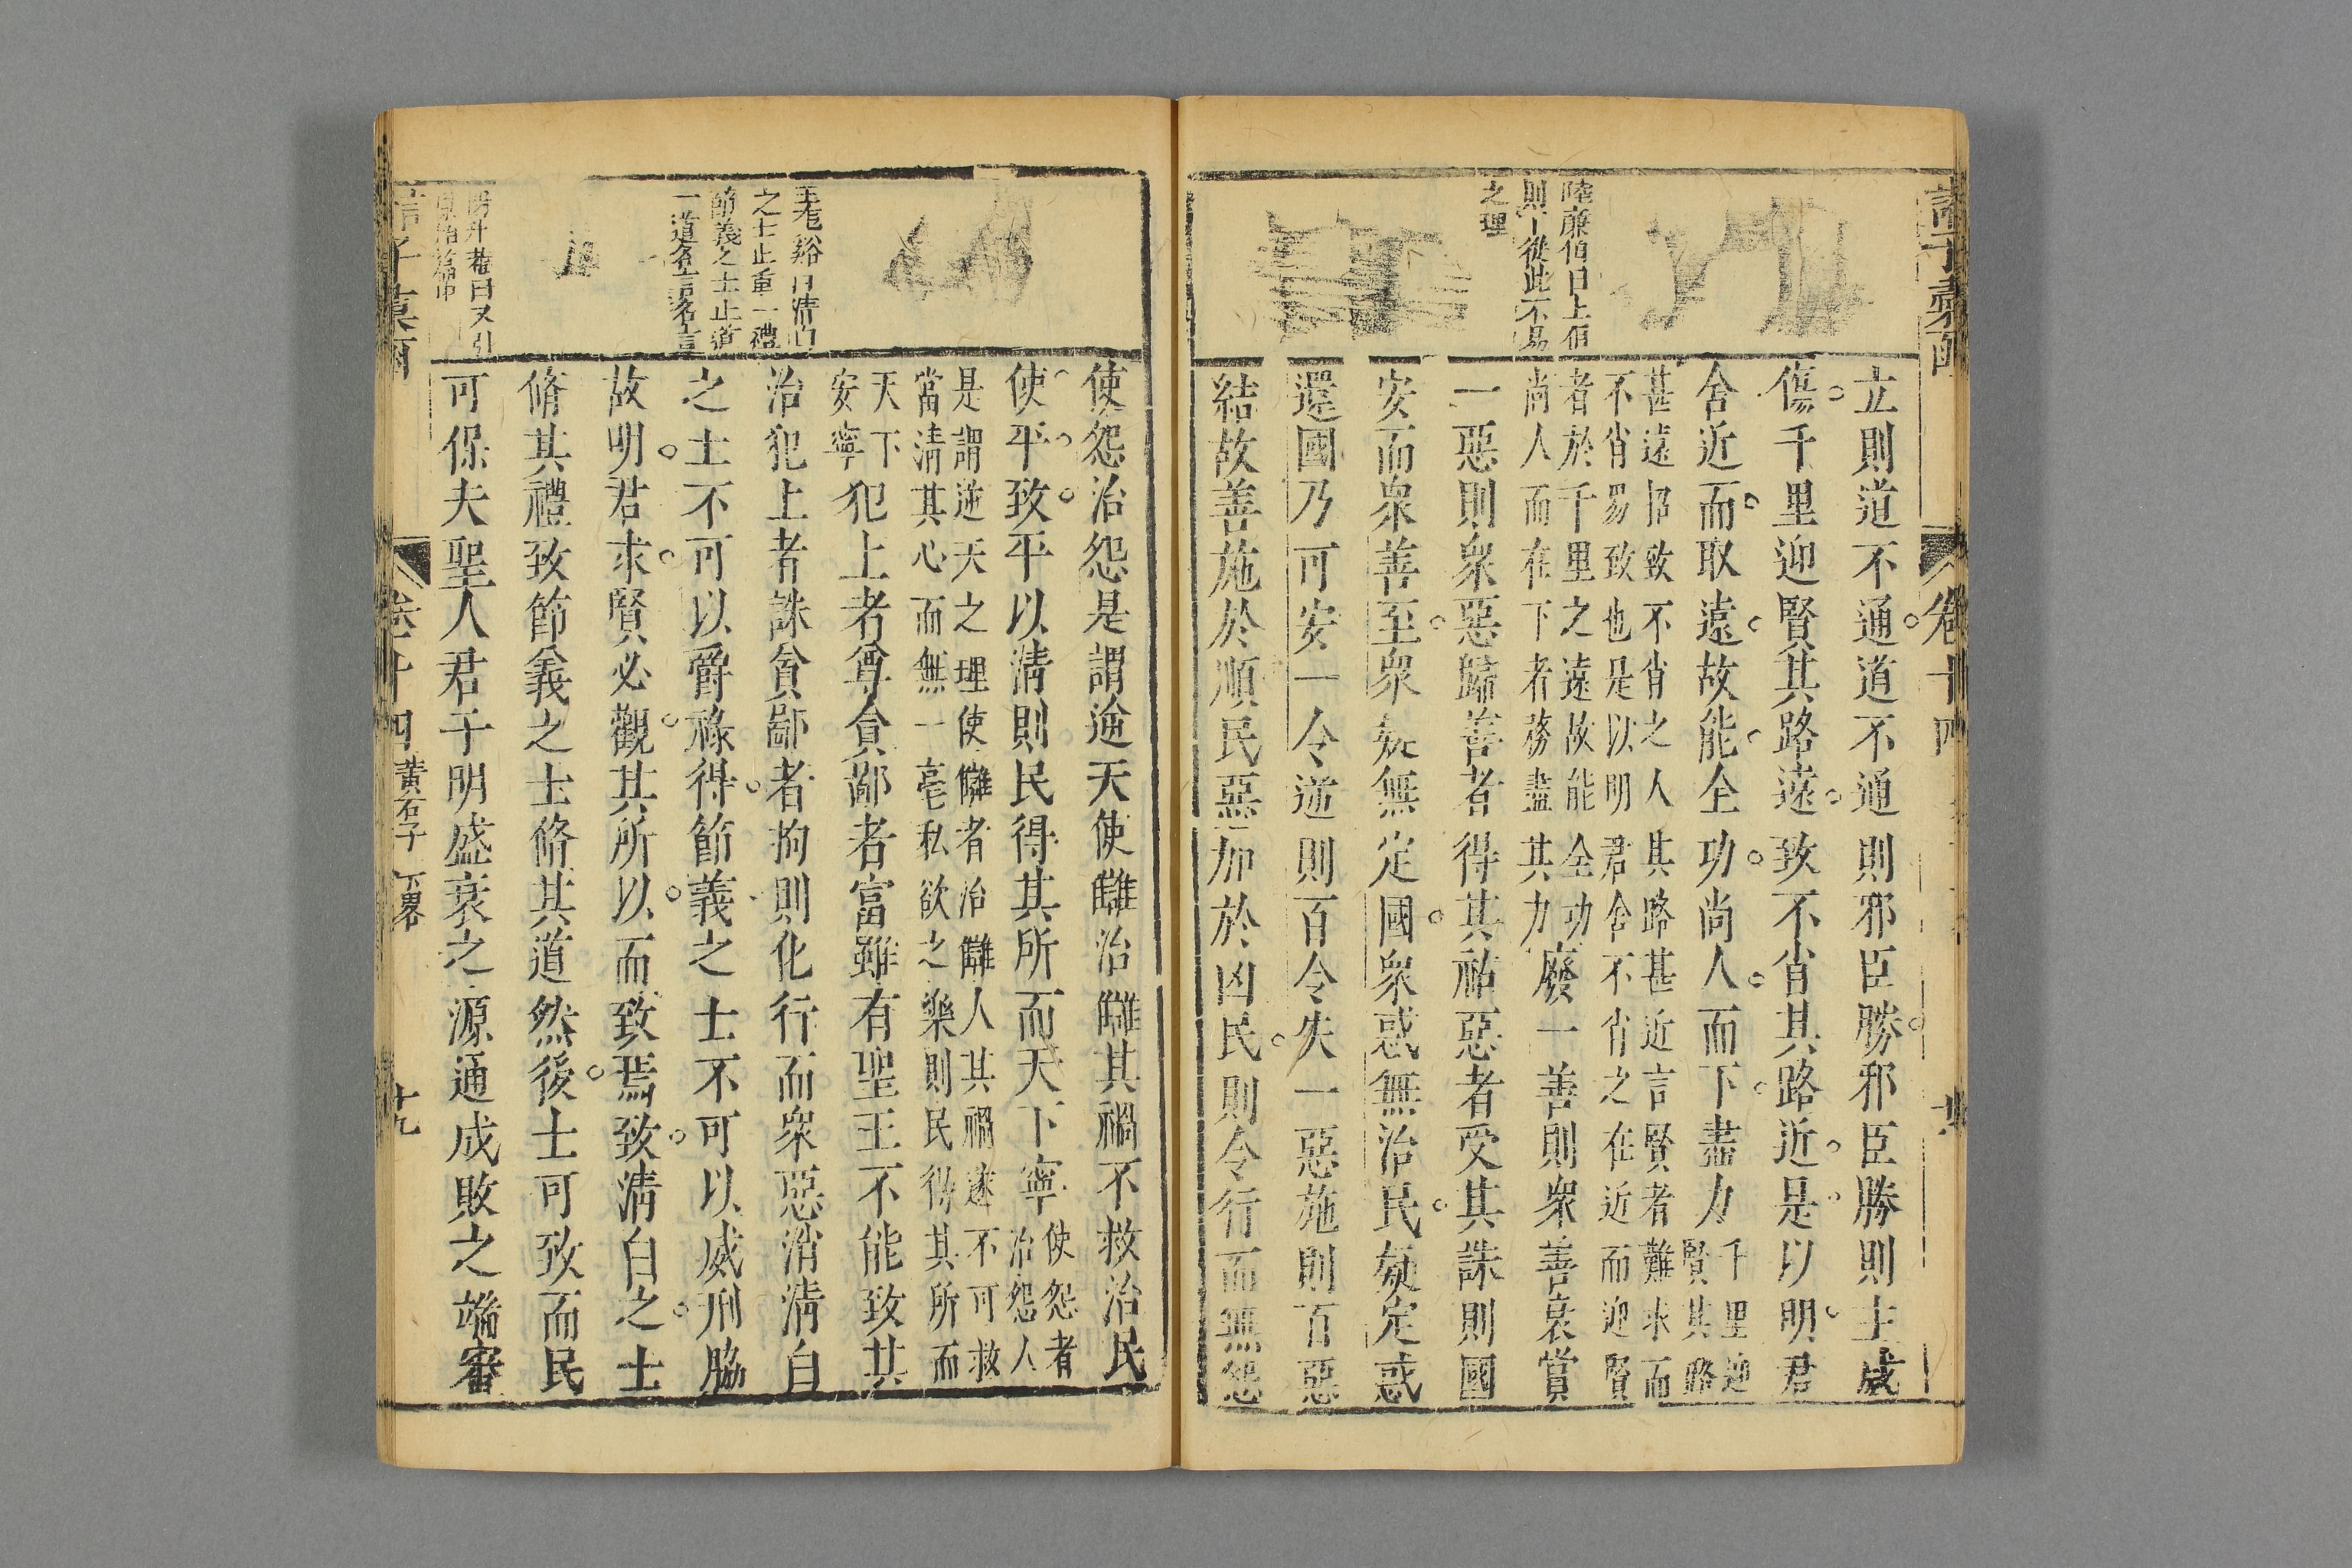 陸亷伯曰上有
則下從此不易
之理
立則道不通道不通則邪臣勝邪臣勝則主威
傷千里迎賢其路遠致不肖其路近是以明君
舍近而取遠故能全功尚人而下盡力千里迎
賢其路
甚遠招致不肖之人其路甚近言賢者難求而
不肖易致也是以明君舍不肖之在近而迎賢
者於千里之遠故能全功
尚人而在下者務盡其力
廢一善則衆善衰賞
一惡則衆惡歸善者得其祐惡者受其誅則國
安而衆善至衆疑無定國衆惑無治民疑定惑
還國乃可安一令逆則百令失一惡施則百惡
結故善施於順民惡加於凶民則令行而無怨
卷十四
使怨治怨是謂逆天使讎治讎其禍不救治民
使平致平以清則民得其所而天下寧
使怨者
治怨人
是謂逆天之理使讎者治讎人其禍遂不可救
當清其心而無一毫私欲之樂則民得其所而
天下
安寧
犯上者尊貪鄙者富雖有聖王不能致其
治犯上者誅貪鄙者拘則化行而衆惡消清白
之士不可以爵祿得節義之士不可以威刑脇
故明君求賢必觀其所以而致焉致清白之士
脩其禮致節義之士脩其道然後士可致而民
可保夫聖人君子明盛衰之源通成敗之端審
曰清白
之士止重一禮
節義之士止道
一道名言名言
曰又引
卷十四 黃石子 下畧 十九